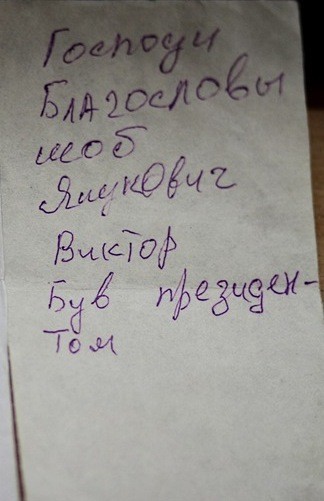 Господи
Благословы
шоб
Янукович
Виктор
Був президен-
том